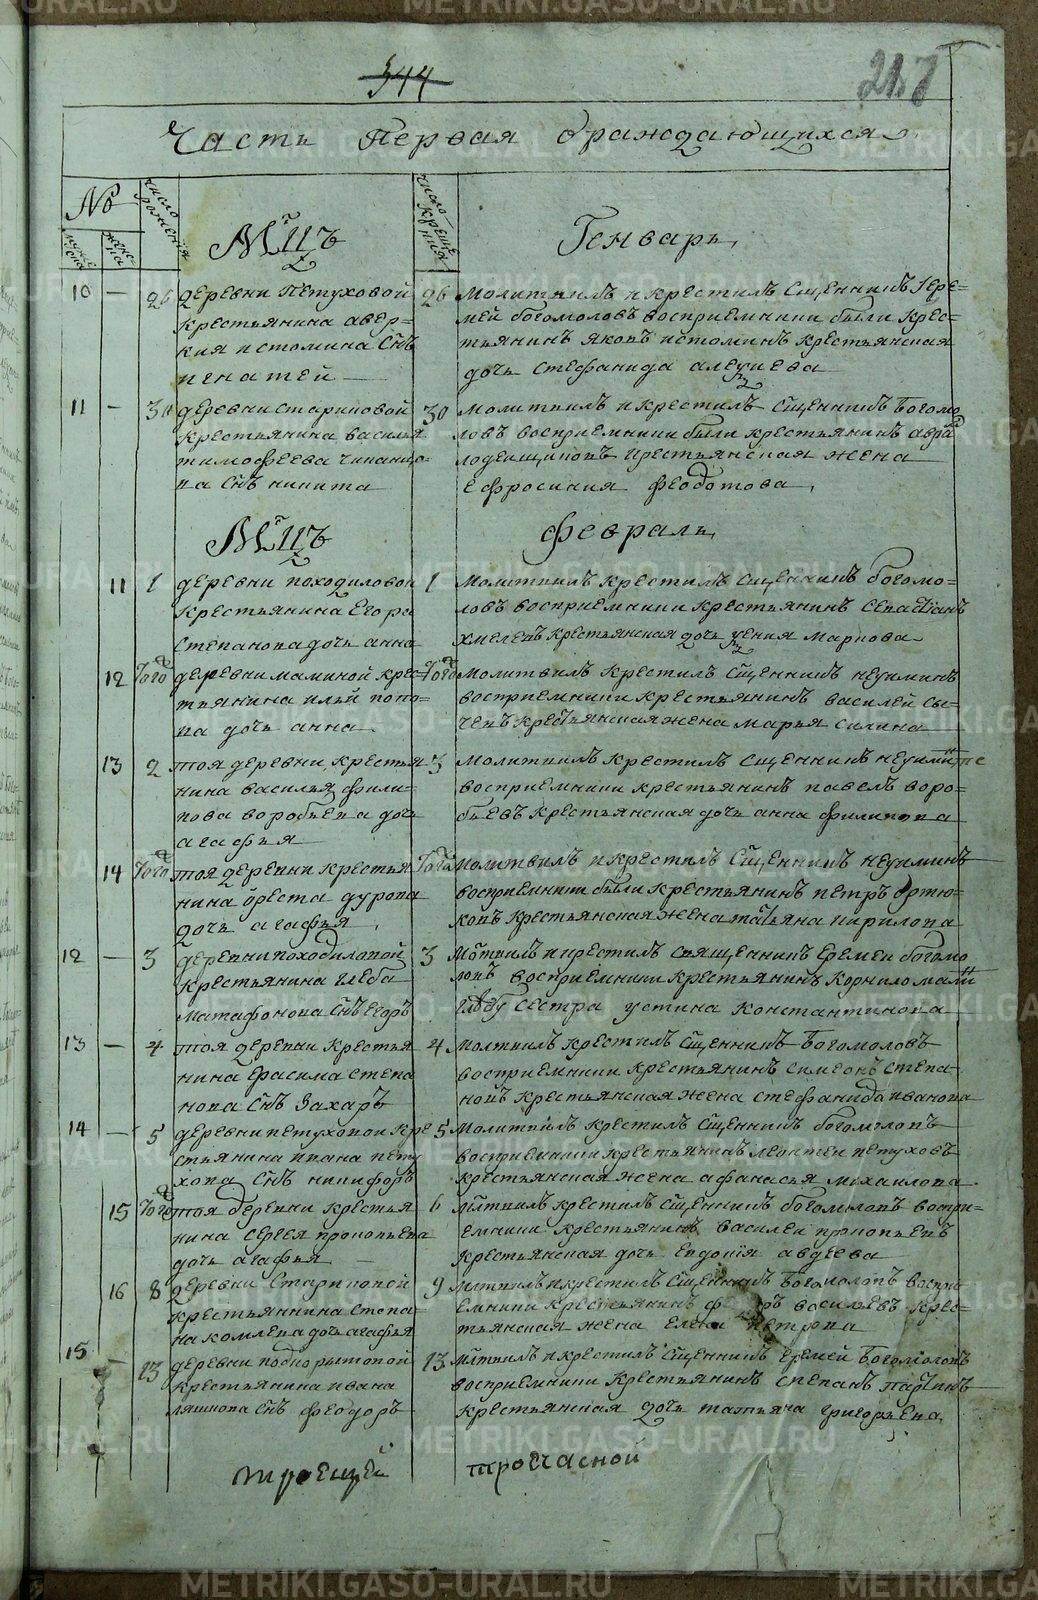 344
217
Часть первая ораждающихся
№
число рождения
Мцъ
число крещения
Генварь
мужеска
женска
10 — 26 деревни Петуховой
крестьянина авер=
кия истомина снъ
игнатей
26 молитвилъ и крестилъ Сщенникъ Іере=
мей богомоловъ восприемники были крес=
тьянинъ яковъ истоминъ крестьянская
дочь стефанида
11 — 30 деревни стариковой
крестьянина василья
тимофеева
снъ никита
30 молитвилъ и крестилъ Сщенникъ Богомо
ловъ восприемники были крестьянинъ
крестьянская жена
ефросиния феодотова
Мцъ
февраль
11 1 деревни походиловой
крестьянина Егора
степанова дочь анна
1 молитвилъ крестилъ Сщенникъ богомо=
ловъ восприемники крестьянинъ севастіанъ
хмелевъ крестьянская дочь маркова
12 того деревни маминой крес=
тьянина ильи попо=
ва дочь анна
того молитвилъ крестилъ Сщенникъ неуиминъ
восприемники крестьянинъ василей сы=
чевъ крестьянская жена марья силина
13 2 тоя деревни крестья
нина василья фили=
пова воробьева дочь
агафья
3 молитвилъ крестилъ Сщенникъ
восприемники крестьянинъ павелъ воро=
бьевъ крестьянская дочь анна филипова
14 того тоя деревни крестья
нина ореста дурова
дочь агафья
того молитвилъ и крестилъ Сщенникъ неуиминъ
восприемники были крестьянинъ петръ ортю=
ковъ крестьянская жена татьяна кирилова
12 — 3 деревни походиловой
крестьянина глеба
матафонова снъ егоръ
3 молтвилъ и крестилъ священникъ Еремеи богомо
ловъ восприемники крестьянинъ корнило
глебу сестра устина константинова
13 — 4 тоя деревни крестья
нина Ерасима степа
нова снъ Захаръ
4 молтвилъ крестилъ Сщенникъ Богомоловъ
восприемники крестьянинъ симеонъ степа=
новъ крестьянская жена стефанида иванова
14 — 5 деревни петуховои кре
стьянина ивана пету
хова снъ никифоръ
5 молитвилъ крестилъ Сщенникъ богомоловъ
восприемники крестьянинъ леонтеи петуховъ
крестьянская жена афанасья михаилова
15 того тоя деревни крестья
нина Сергея прокопьева
дочь агафья
6 млтвилъ крестилъ Сщенникъ богомоловъ воспри=
емники крестьянинъ василеи прокопьевъ
крестьянская дочь евдокія авдеева
16 8 деревни стариковой
крестьянина степа=
на комлева дочь агафья
9 млтвилъ и крестилъ Сщенникъ Богомоловъ воспри
емники крестьянинъ васильевъ крес=
тьянская жена Елена петрова
15 — 13 деревни
крестьянина ивана
ляшкова снъ феодоръ
13 млтвилъ и крестилъ Сщенникъ Еремей Богомоловъ
восприемники крестьянинъ степанъ
крестьянская дочь татьяна григорьева
троецкой
METRIKI.GASO-URAL.RU